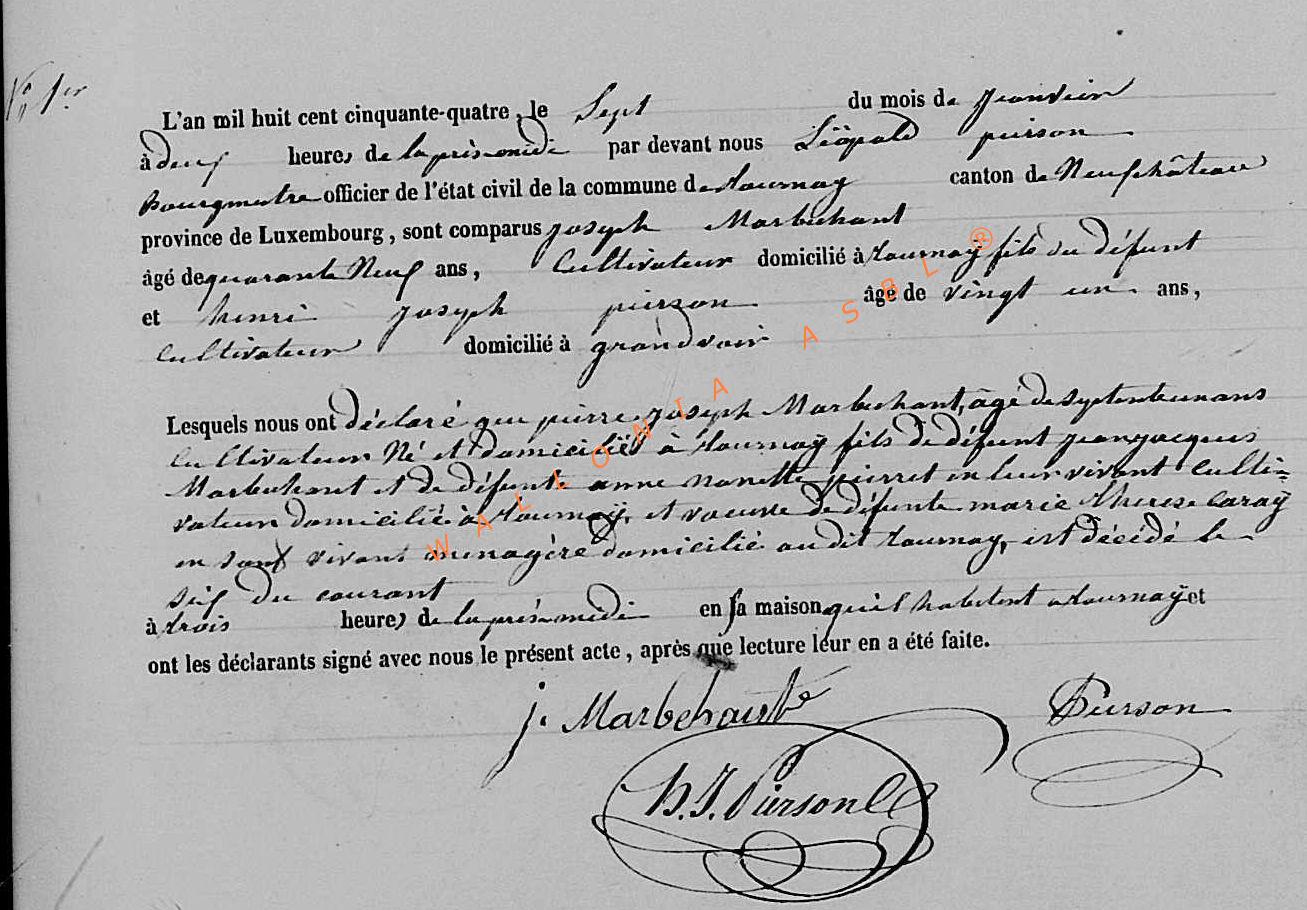 N° 1er
L'an mil huit cent cinquante-quatre, le Sept du mois de Janvier
à deux heures de laprès-midi par devant nous Léopold pierson
Bourgmestre officier de l'état civil de la commune de tournay canton de Neufchâteau
province de Luxembourg, sont comparus joseph Marbehant
âgé de quarante Neuf ans, Cultivateur domicilié à tournaÿ fils du défunt
et henri joseph pierson âgé de vingt un ans,
cultivateur domicilié à grandvoir
Lesquels nous ont déclaré que pierre joseph Marbehant, âgé de septante un ans
cultivateur Né et domicilié à tournaÿ fils de défunt jean jacques
Marbehant et de défunte anne nanette pierret en leur vivant Culti=
vateur domicilié à tournay, et de défunte marie therese
en son vivant menagère domicilié au dit tournay, est décédé le
six du courant
à trois heures de laprès-midi en sa maison quil habitent a tournaÿ et
ont les déclarants signé avec nous le présent acte, après que lecture leur en a été faite.
j. Marbehant Pierson
H. J. Pierson
WALLONIA ASBL ®